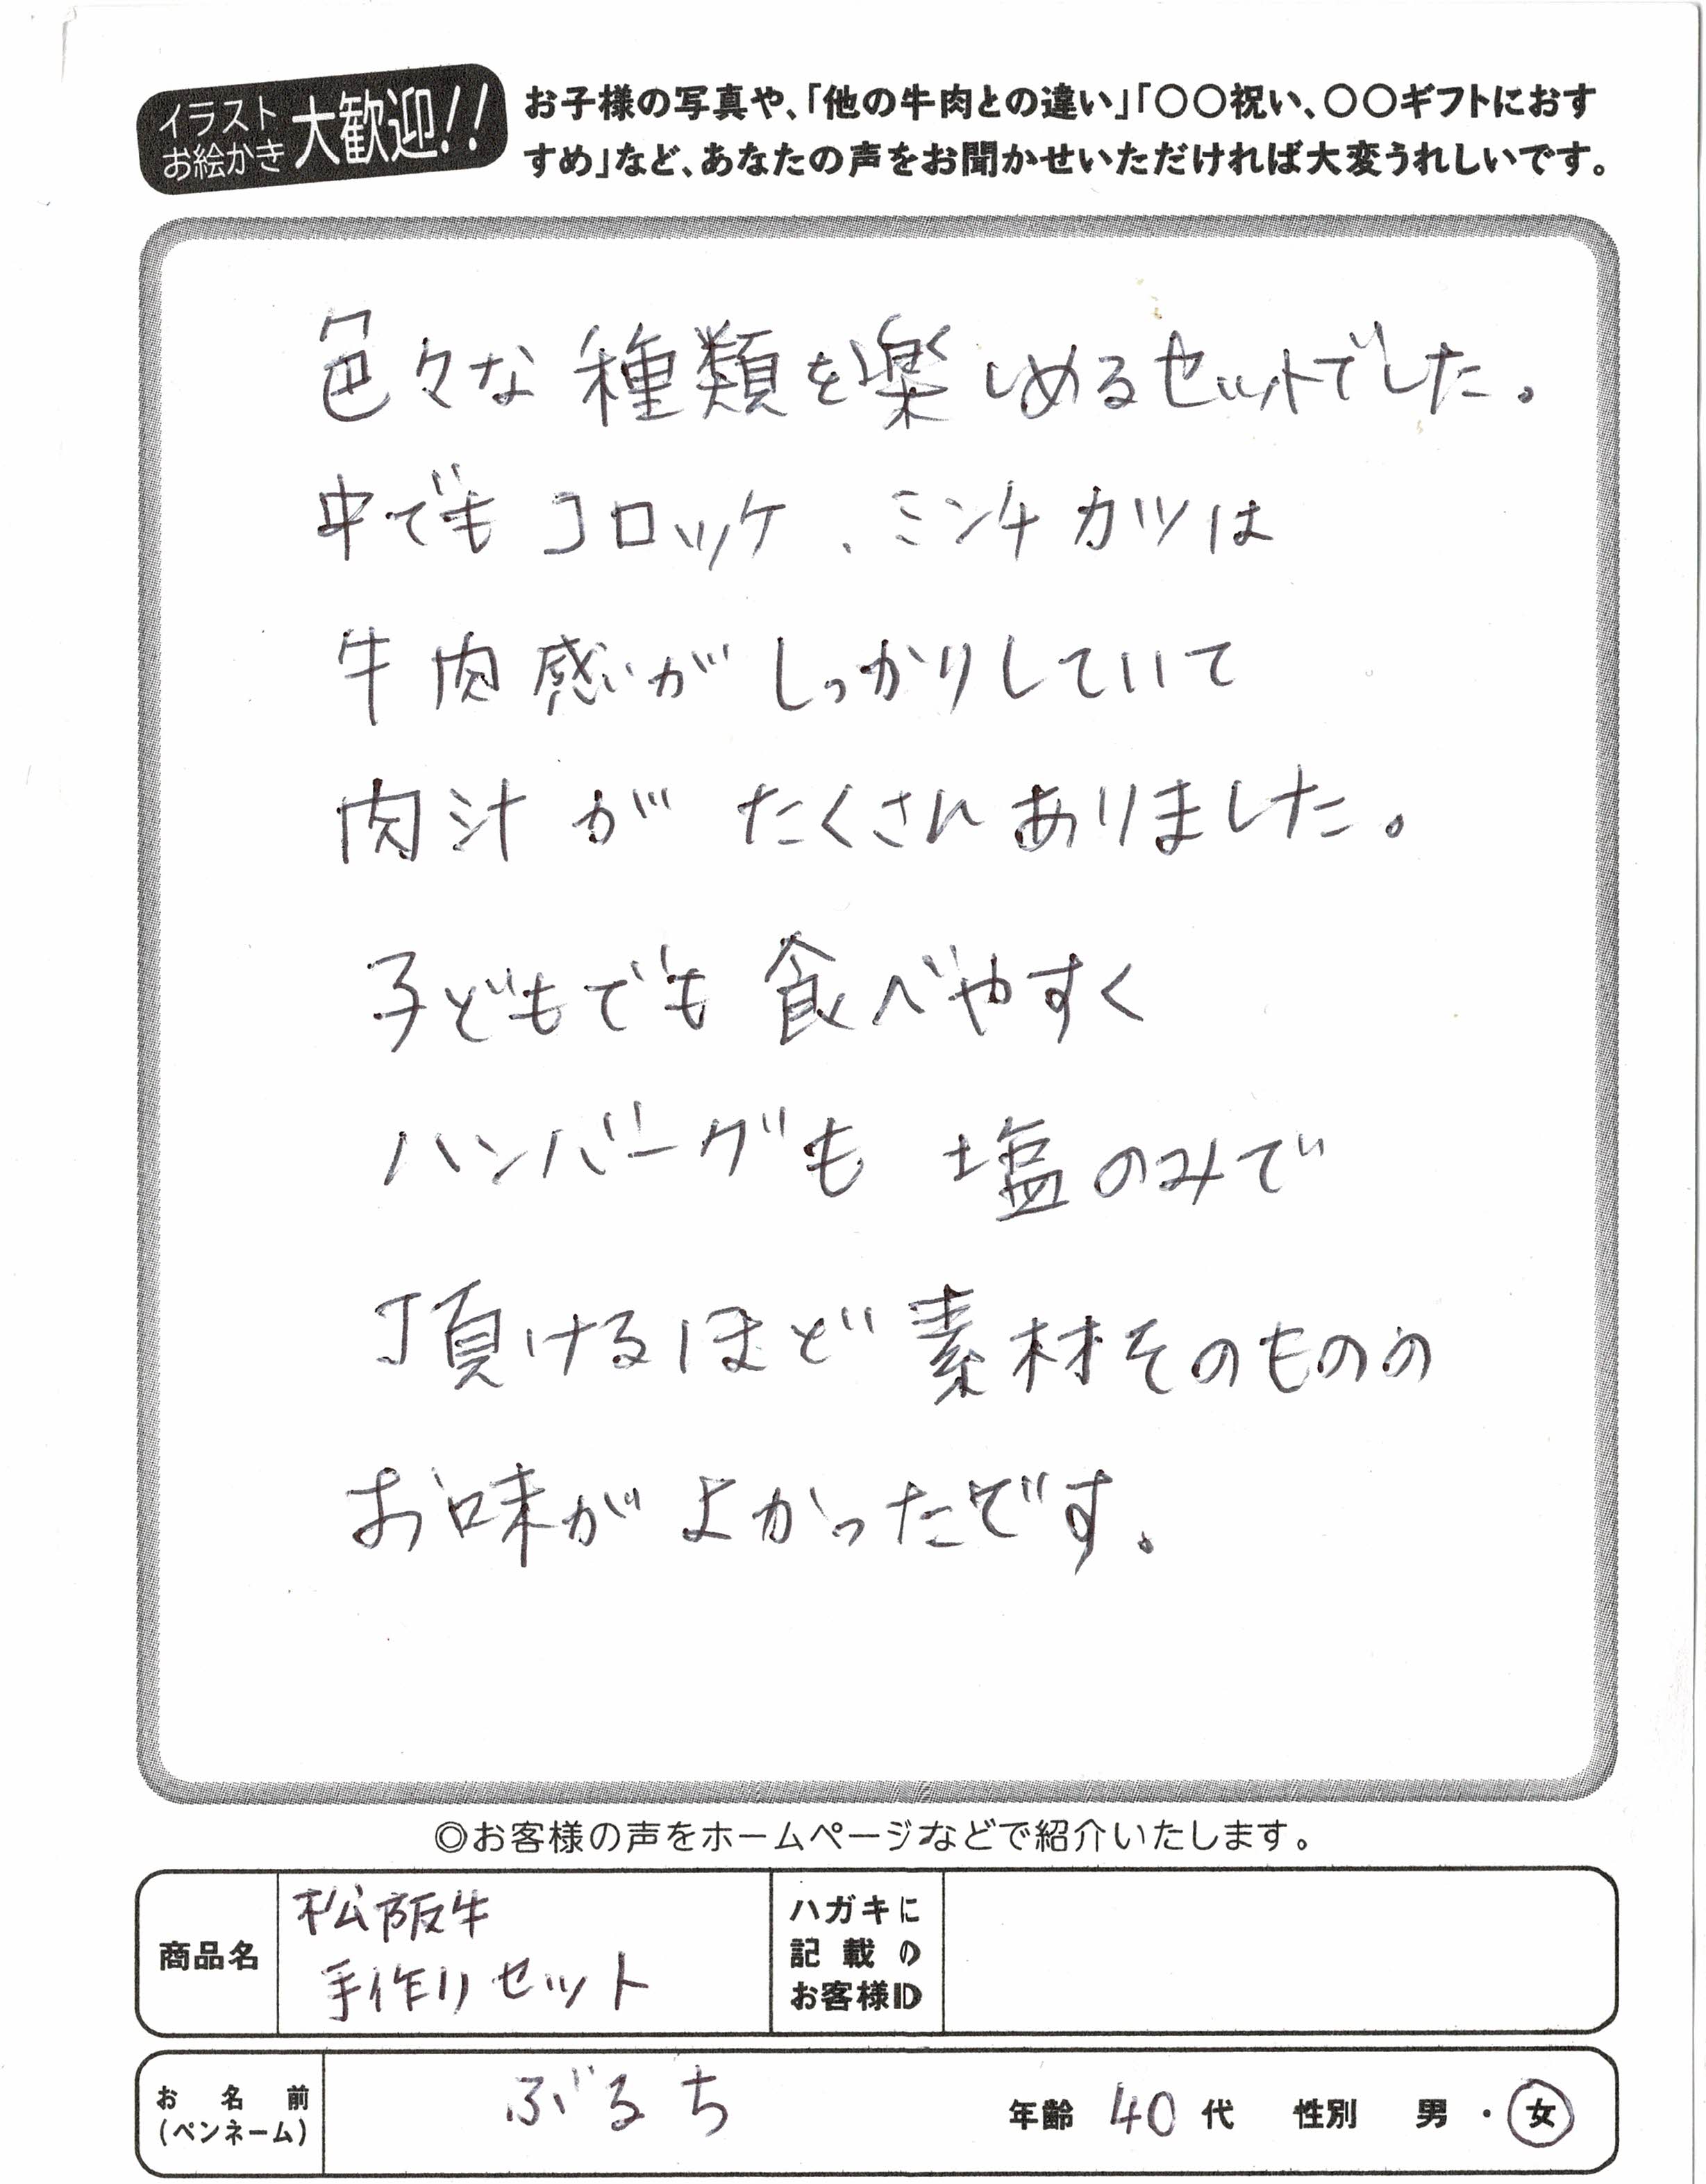 イラスト
お絵かき
大歓迎!!
お子様の写真や、「他の牛肉との違い」「〇〇祝い、〇〇ギフトにおす
すめ」など、あなたの声をお聞かせいただければ大変うれしいです。
色々な種類を楽しめるセットでした。
中でもコロッケ、ミンチカツは
牛肉感がしっかりしていて
肉汁がたくさんありました。
子どもでも食べやすく
ハンバーグも塩のみで
頂けるほど素材そのものの
お味がよかったです。
◎お客様の声をホームページなどで紹介いたします。
商品名
松阪牛
手作りセット
ハガキに
記載の
お客様ID
お名前
(ペンネーム)
ぶるち
年齢 40代 性別 男・女